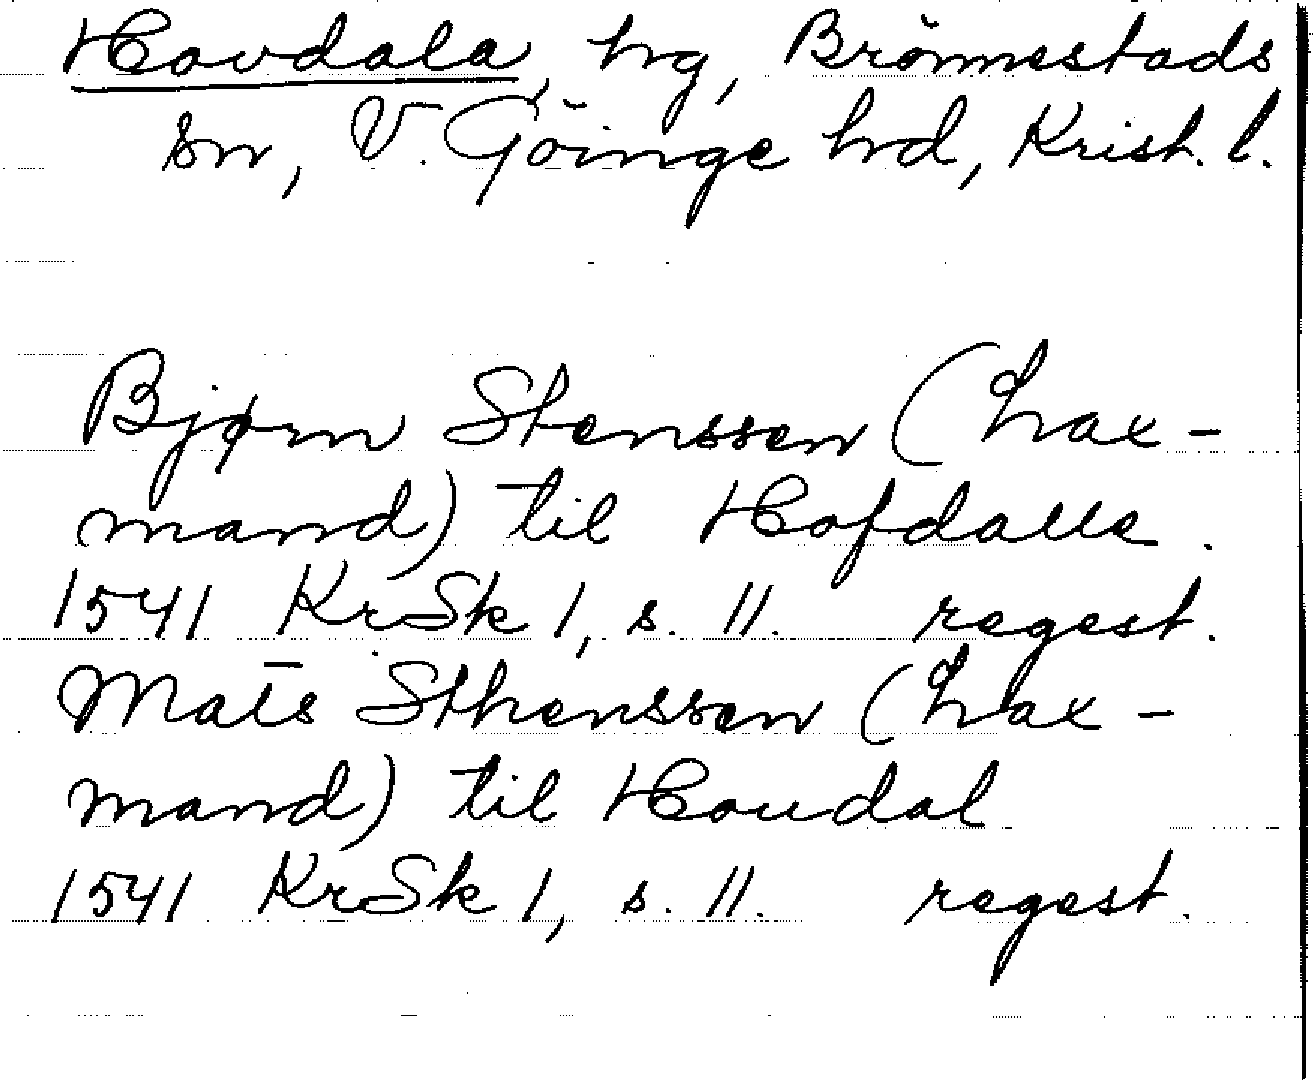 Hovdala, hg, Brönnestads
sn, V. Göinge hd, Krist. l.
Bjørn Stenssen (Lax-
mand) til Hofdalle.
1541 KrSk 1, s. 11. regest.
Mats Sthenssen (Lax-
mand) til Houdal
1541 KrSk 1, s. 11. regest.